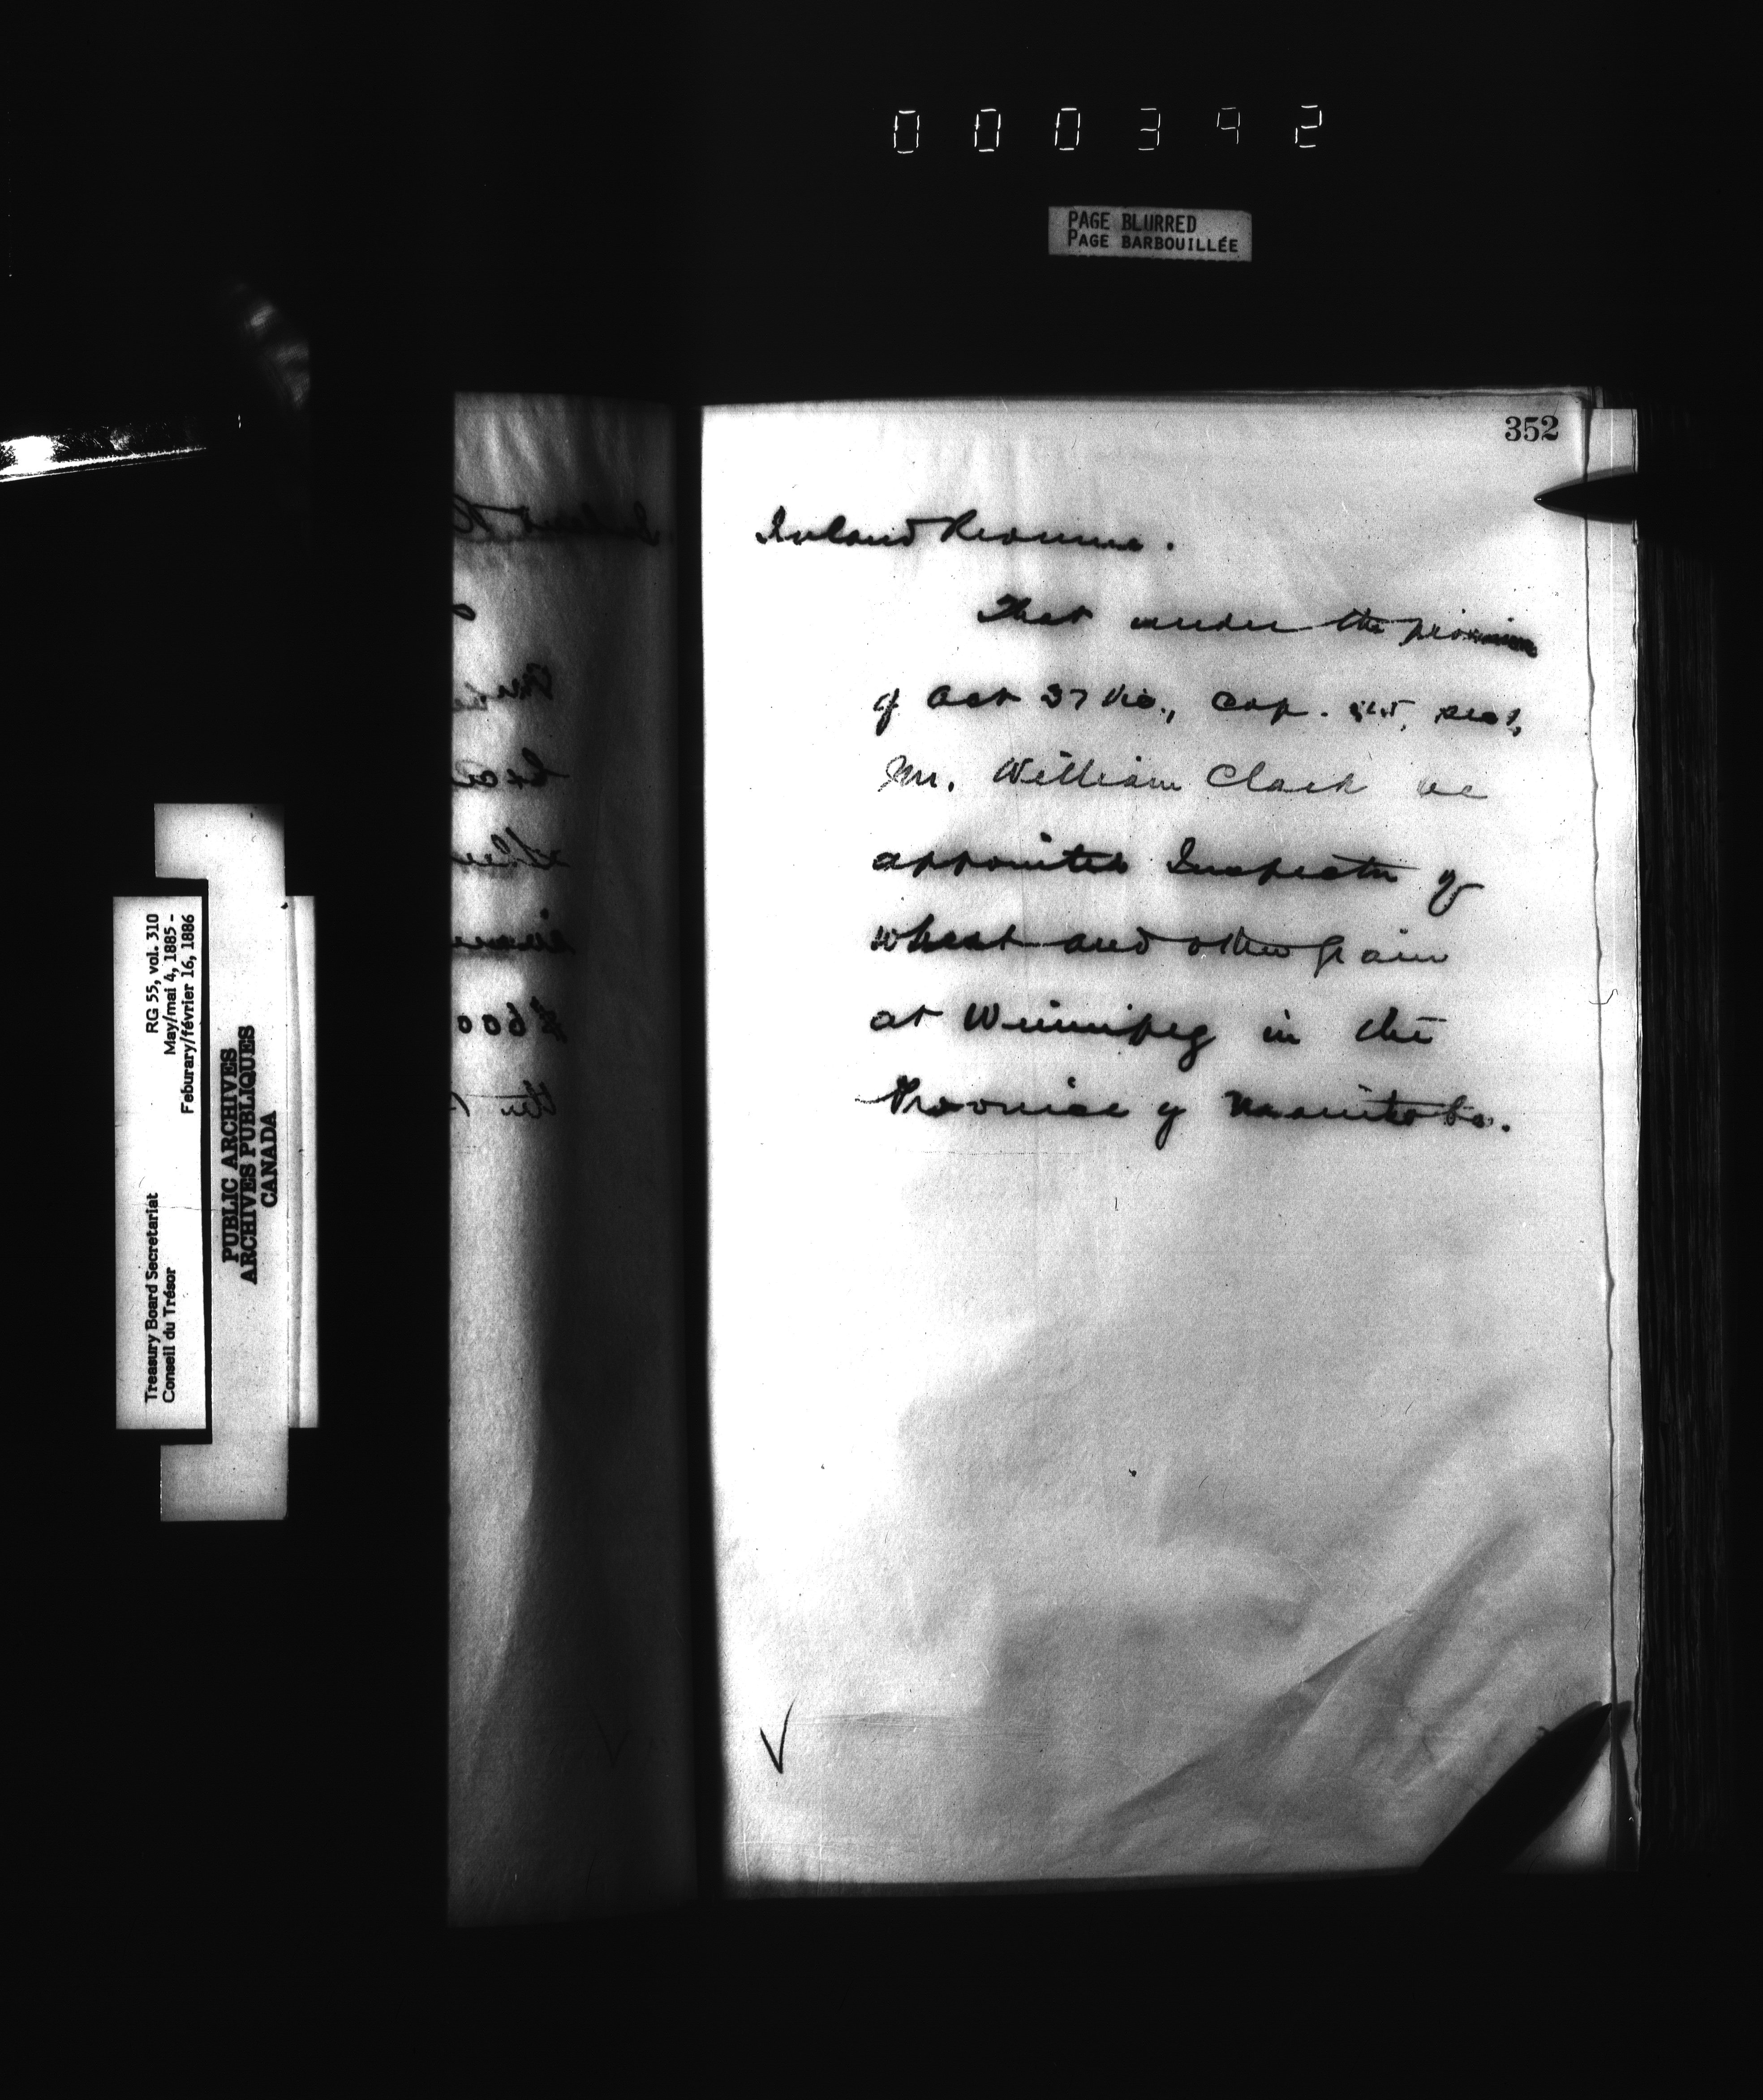 000392
PAGE BLURRED
PAGE BARBOUILLÉE
352
Inland Revenue.
That under the provisions
of Act 37 Vic., Cap. 45, sec 1,
Mr. William Clark be
appointed Inspector of
wheat and other grain
at Winnipeg in the
Province of Manitoba.
$600
the
Treasury Board Secretariat
Conseil du Trésor
RG 55, vol. 310
May/mai 4, 1885 -
Feburary/février 16, 1886
PUBLIC ARCHIVES
ARCHIVES PUBLIQUES
CANADA